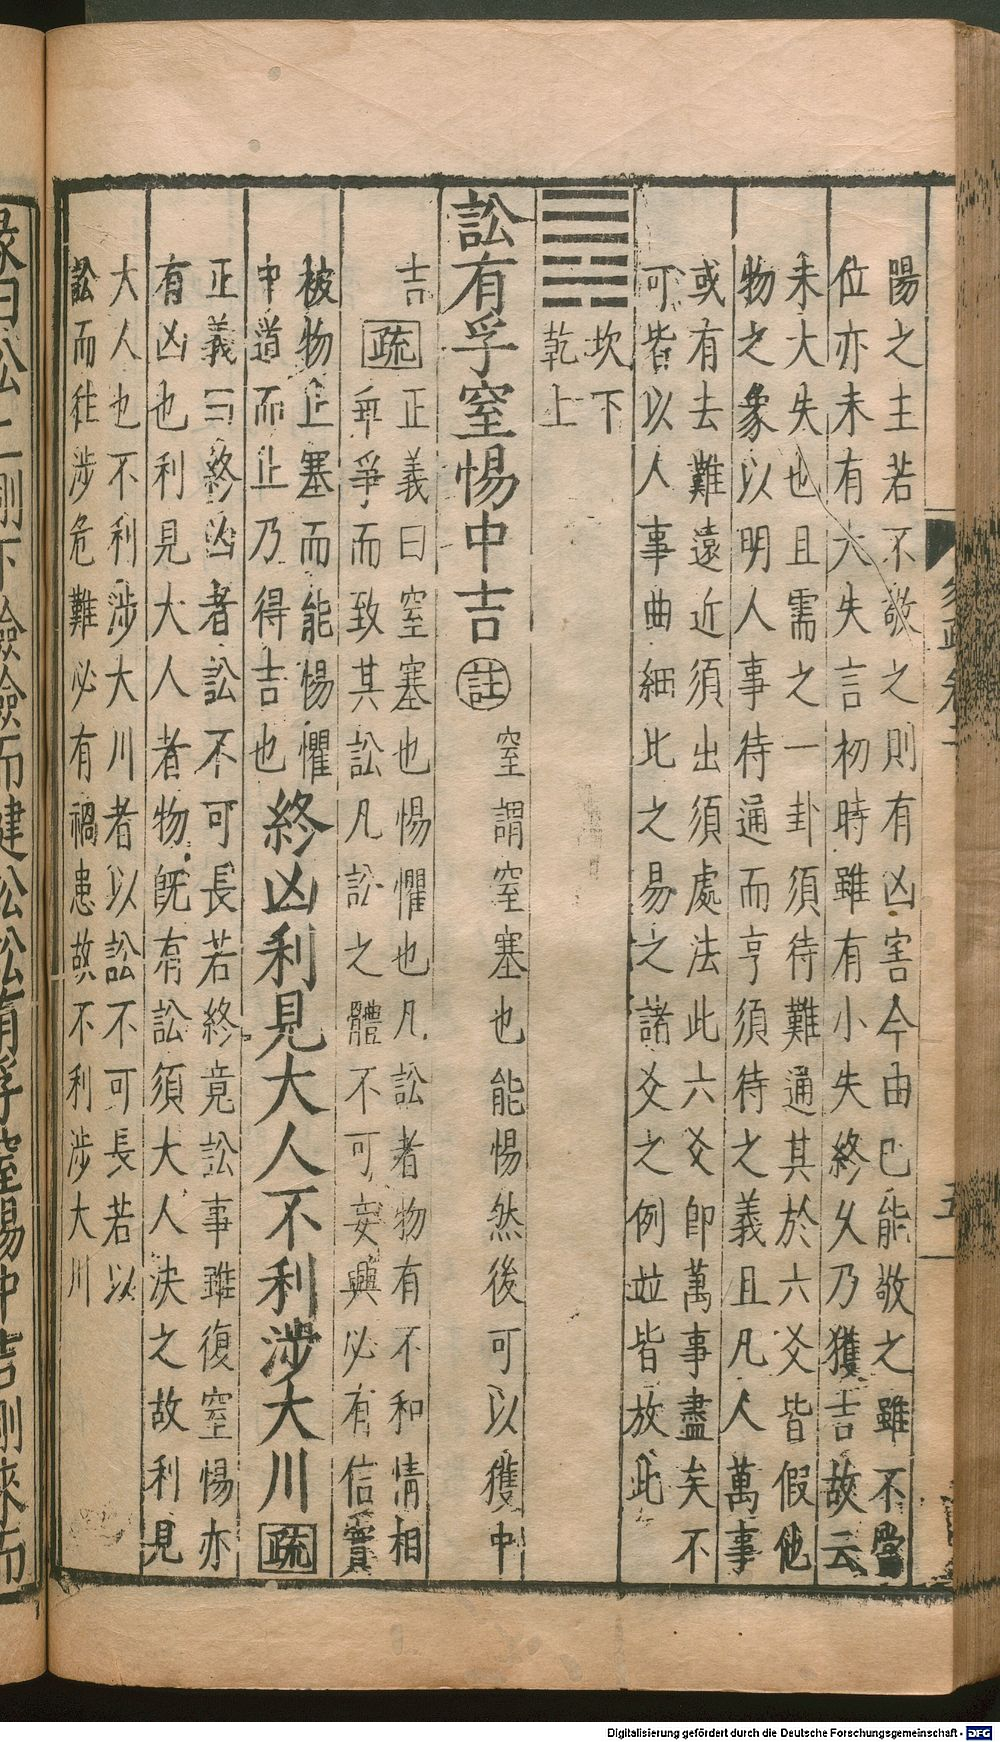 陽之主若不敬之則有凶害今由已能敬之雖不當
位亦未有大失言初時雖有小失終久乃獲吉故云
未大失也且需之一卦須待難通其於六爻皆假他
物之象以明人事待通而亨須待之義且凡人萬事
或有去難遠近須出須處法此六爻即萬事盡矣不
可皆以人事曲細比之易之諸爻之例並皆放此
坎下
乾上
訟有孚窒惕中吉註窒謂窒塞也能惕然後可以獲中
吉疏正義曰窒塞也惕懼也凡訟者物有不和情相
乖爭而致其訟凡訟之體不可妄興必有信實
被物止塞而能惕懼
中道而止乃得吉也
終凶利見大人不利涉大川疏
正義曰終凶者訟不可長若終竟訟事雖復窒惕亦
有凶也利見大人者物旣有訟須大人決之故利見
大人也不利涉大川者以訟不可長若以
訟而徃涉危難必有禍患故不利涉大川
彖曰訟上剛下險險而健訟訟有孚窒惕中吉剛來而
Digitalisierung gefördert durch die Deutsche Forschungsgemeinschaft - DFG